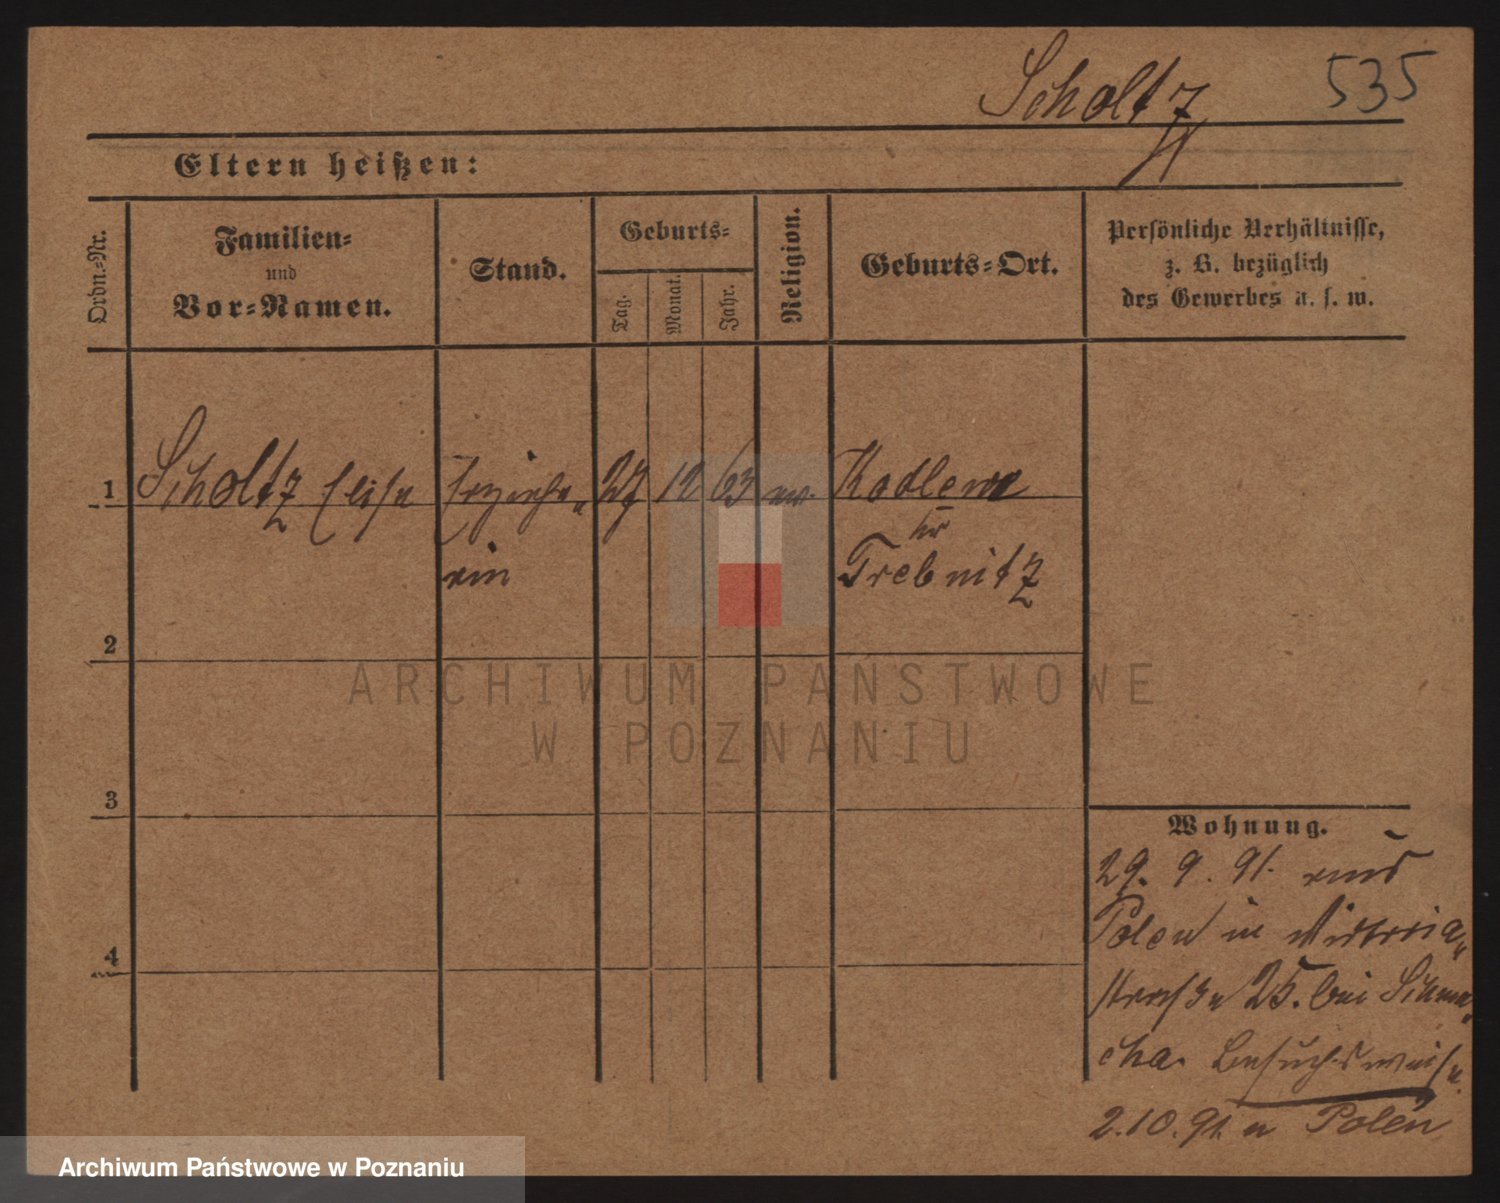 Scholtz 535
Eltern heißen:
Ordn.-Nr.
Familien-
und
Vor-Namen.
Stand.
Geburts-
Tag.
Monat.
Jahr.
Religion.
Geburts-Ort.
Persönliche Verhältnisse,
z. B. bezüglich
des Gewerbes u. s. w.
1 Scholtz Elise Erziehe- 27 12 63 ev. Kodlewe
rin
kr
Trebnitz
2
3
4
ARCHIWUM PAŃSTWOWE
W POZNANIU
Wohnung.
29. 9. 91. aus
Polen in Victoria-
straße 25. bei Schma-
cha. Besuchsweise.
2.10.91. n Polen
Archiwum Państwowe w Poznaniu